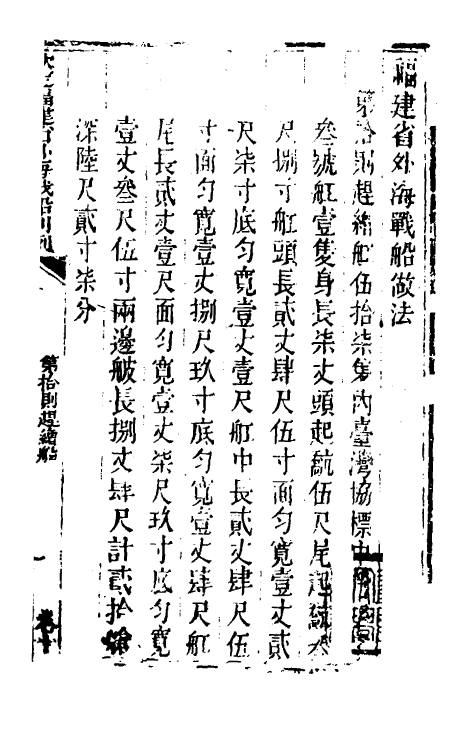 福建省外海戰船做法
第拾則趕繒船伍拾柒隻內臺灣協標中
叁號船壹隻身長柒丈頭起𦨭伍尺尾起𦨭
尺捌寸船頭長貳丈肆尺伍寸面勻寬壹丈貳
尺柒寸底勻寬壹丈壹尺船中長貳丈肆尺伍
寸面勻寬壹丈捌尺玖寸底勻寬壹丈肆尺船
尾長貳丈壹尺面勻寬壹丈柒尺玖寸底勻寬
壹丈叁尺伍寸兩邊𦪙長捌丈肆尺計貳拾
深陸尺貳寸柒分
第拾則趕繒船
卷十